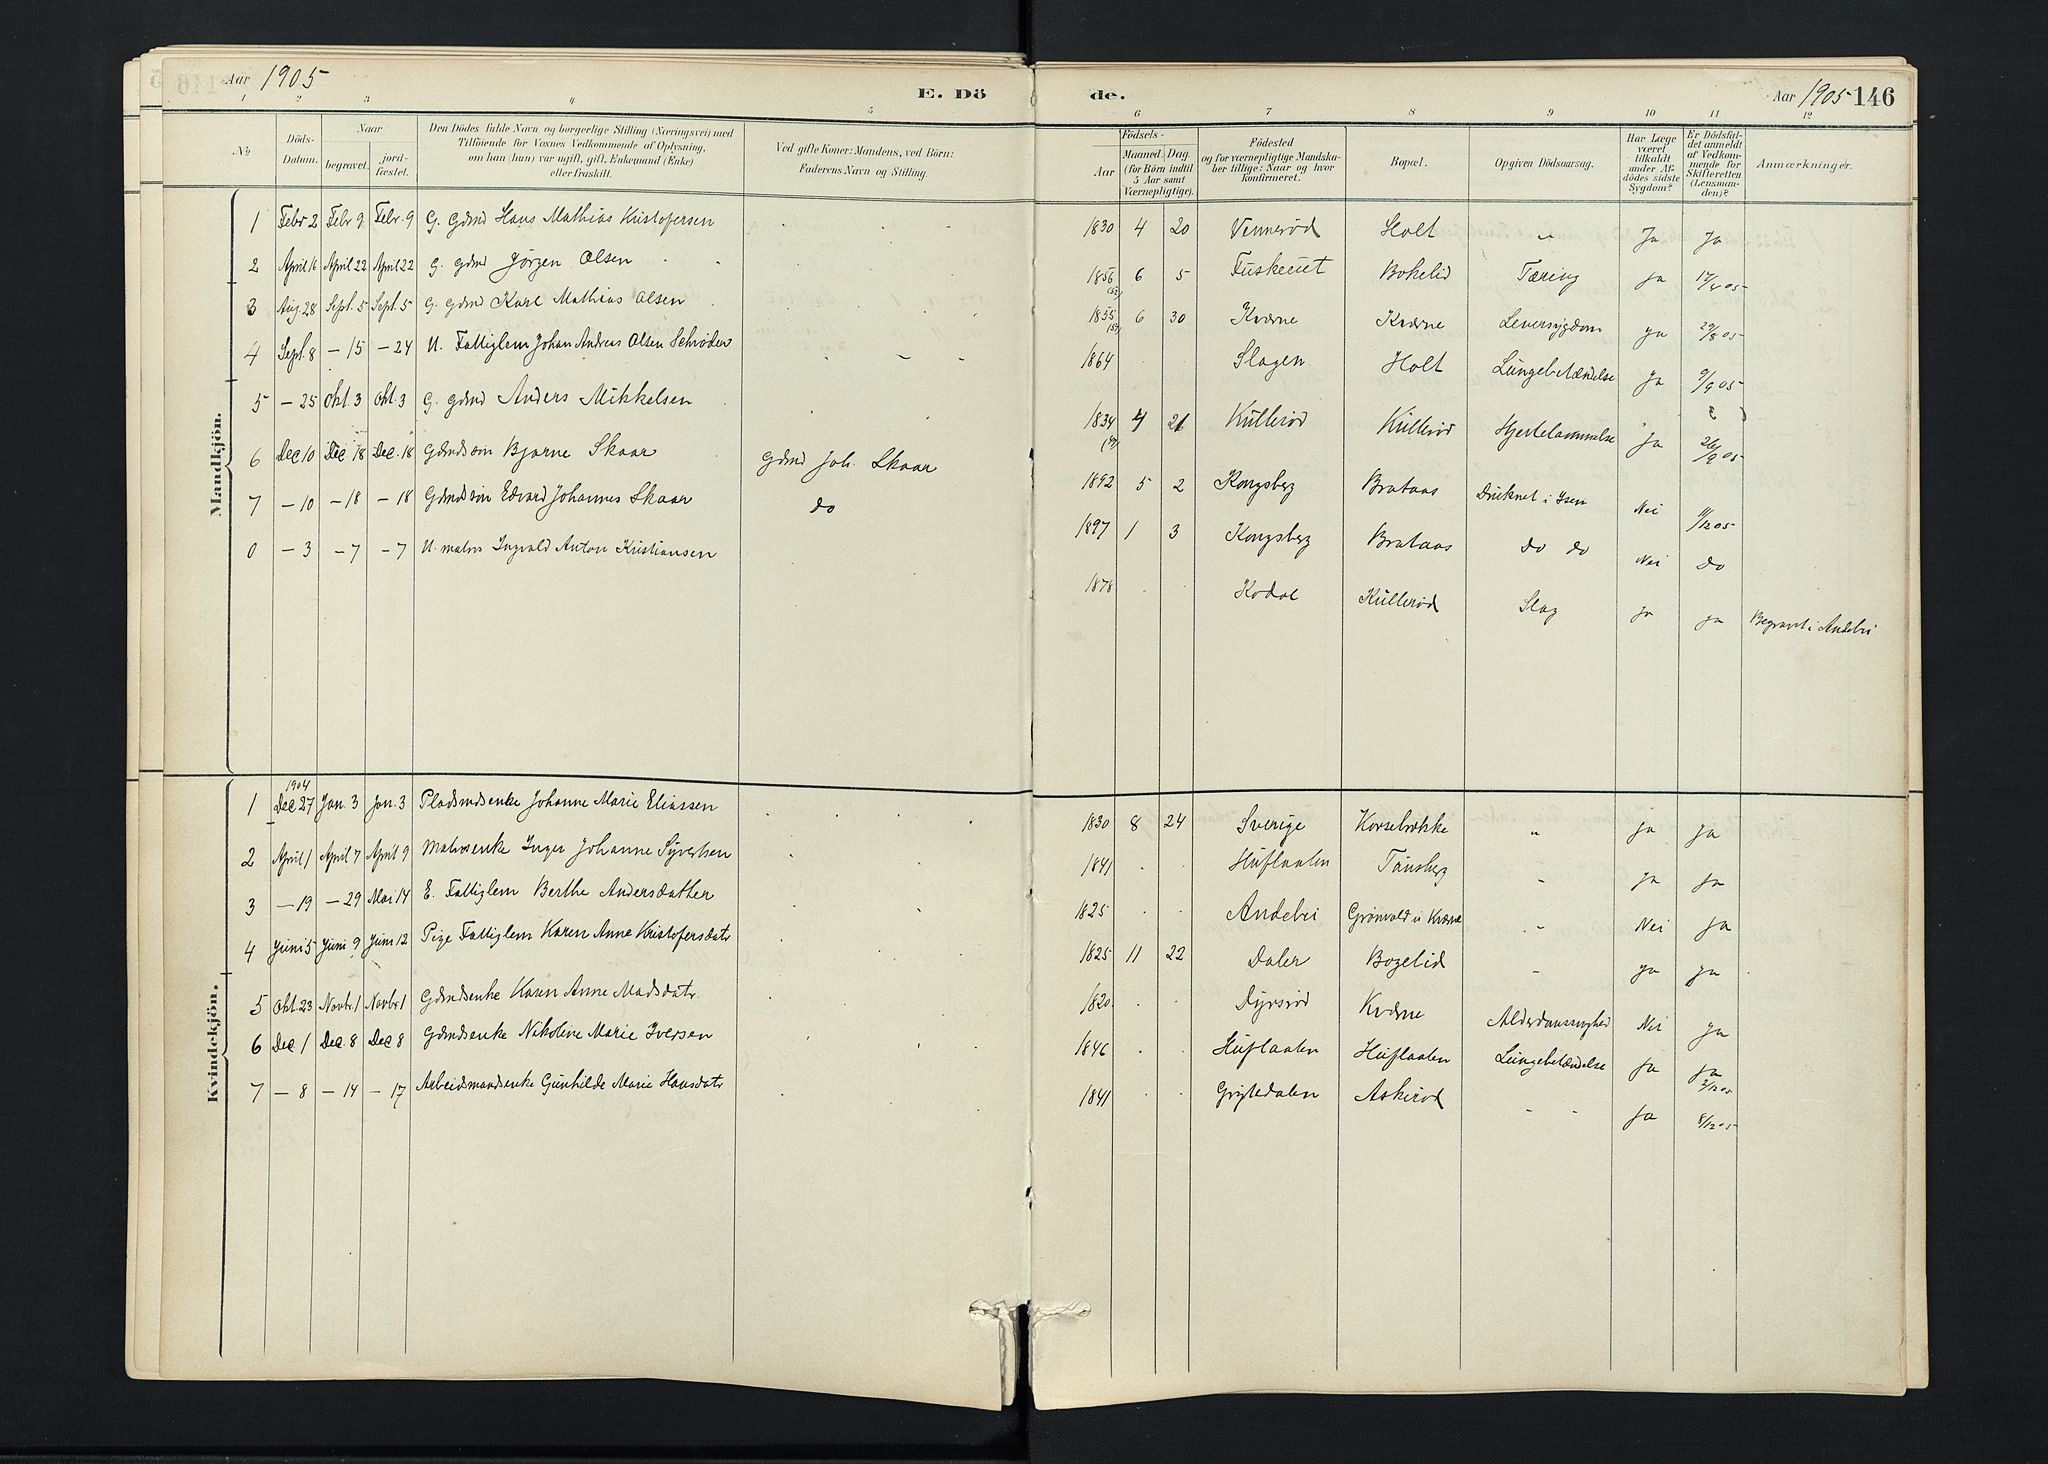 Aar 1905
E. Dö
1 2 3 4 5
№
Döds-Datum.
Naar
begravet.
jord-fæstet.
Den Dödes fulde Navn og borgerlige Stilling (Næringsvei) med
Tilföiende for Voxnes Vedkommende af Oplysning,
om han (hun) var ugift, gift, Enkemand (Enke)
eller fraskilt.
Ved gifte Koner: Mandens, ved Börn:
Faderens Navn og Stilling.
Mandkjön.
1 Febr 2 Febr 9 Febr. 9 G. Gdmd Hans Mathias Kristofersen
2 April 16 April 22 April 22 G. gdmd Jörgen Olsen
3 Aug. 28 Sept. 5 Sept. 5 G. Gdmd Karl Mathias Olsen
4 Sept. 8 – 15 – 24 U. Fattiglem Johan Andreas Olsen Schrøder
5 – 25 Okt. 3 Okt. 3 G. gdmd Anders Mikkelsen
6 Dec 10 Dec 18 Dec. 18 Gdmdssön Bjarne Skaar Gdmd Joh. Skaar
7 – 10 – 18 – 18 Gdmdssön Edvard Johannes Skaar do
0 – 3 – 7 – 7 U. matros Ingvald Anton Kristiansen
Kvindekjön.
1904
1 Dec 27 Jan. 3 Jan. 3 Pladsmdsenke Johanne Marie Eliassen
2 April 1 April 7 April 9 Matrosenke Inger Johanne Syvertsen
3 – 19 – 29 Mai 14 E. Fattiglem Berthe Andersdatter
4 Juni 5 Juni 9 Juni 12 Pige Fattiglem Karen Anne Kristofersdatr
5 Okt. 23 Novbr. 1 Novbr. 1 Gdmdsenke Karen Anne Madsdatr.
6 Dec 1 Dec. 8 Dec 8 Gdmdsenke Nikoline Marie Iversen
7 – 8 – 14 – 17 Arbeidsmandsenke Gunhilde Marie Hansdatr
de.
Aar 1905 146
6 7 8 9 10 11 12
Födsels-
Aar
Maaned. Dag
(for Börn indtil
5 Aar samt
Værnepligtige).
Födested
og for værnepligtige Mandska-
ber tillige: Naar og hvor
konfirmeret.
Bopæl.
Opgiven Dödsaarsag.
Har Læge
været
tilkaldt
under Af-
dödes sidste
Sygdom?
Er Dödsfal-
det anmeldt
af Vedkom-
mende for
Skifteretten
(Lensman-
den)?
Anmærkninger.
1830 4 20 Vennerød Holt " Ja Ja
1856 6 5 Bokelid Tæring Ja 17/4 05
1855 6 30 Kværne Kværne Leversygdom ja 29/8 05
1864 Slagen Holt Lungebetændelse Ja 9/9 05
1834 4 21 Kullerød Kullerød Hjertelammelse Ja 26/9 05
1892 5 2 Kongsberg Brataas Druknet i Isen Nei 11/12 05
1897 1 3 Kongsberg Brataas do do Nei do
1878 Kodal Kullerød Slag Ja Ja Begravet i Andebu
1830 8 24 Sverige Korsebrække " Ja Ja
1841 Huflaaten Tønsberg " Ja Ja
1825 Andebu Grönvold u Kværne " Nei Ja
1825 11 22 Daler " Ja Ja
1820 Dyrsrød Kværne Alderdomssvaghed Nei Ja
1846 Huflaaten Huflaaten Lungebetændelse Ja Ja 2/12 05
1841 Grytedalen Askerød " " Ja 8/12 05